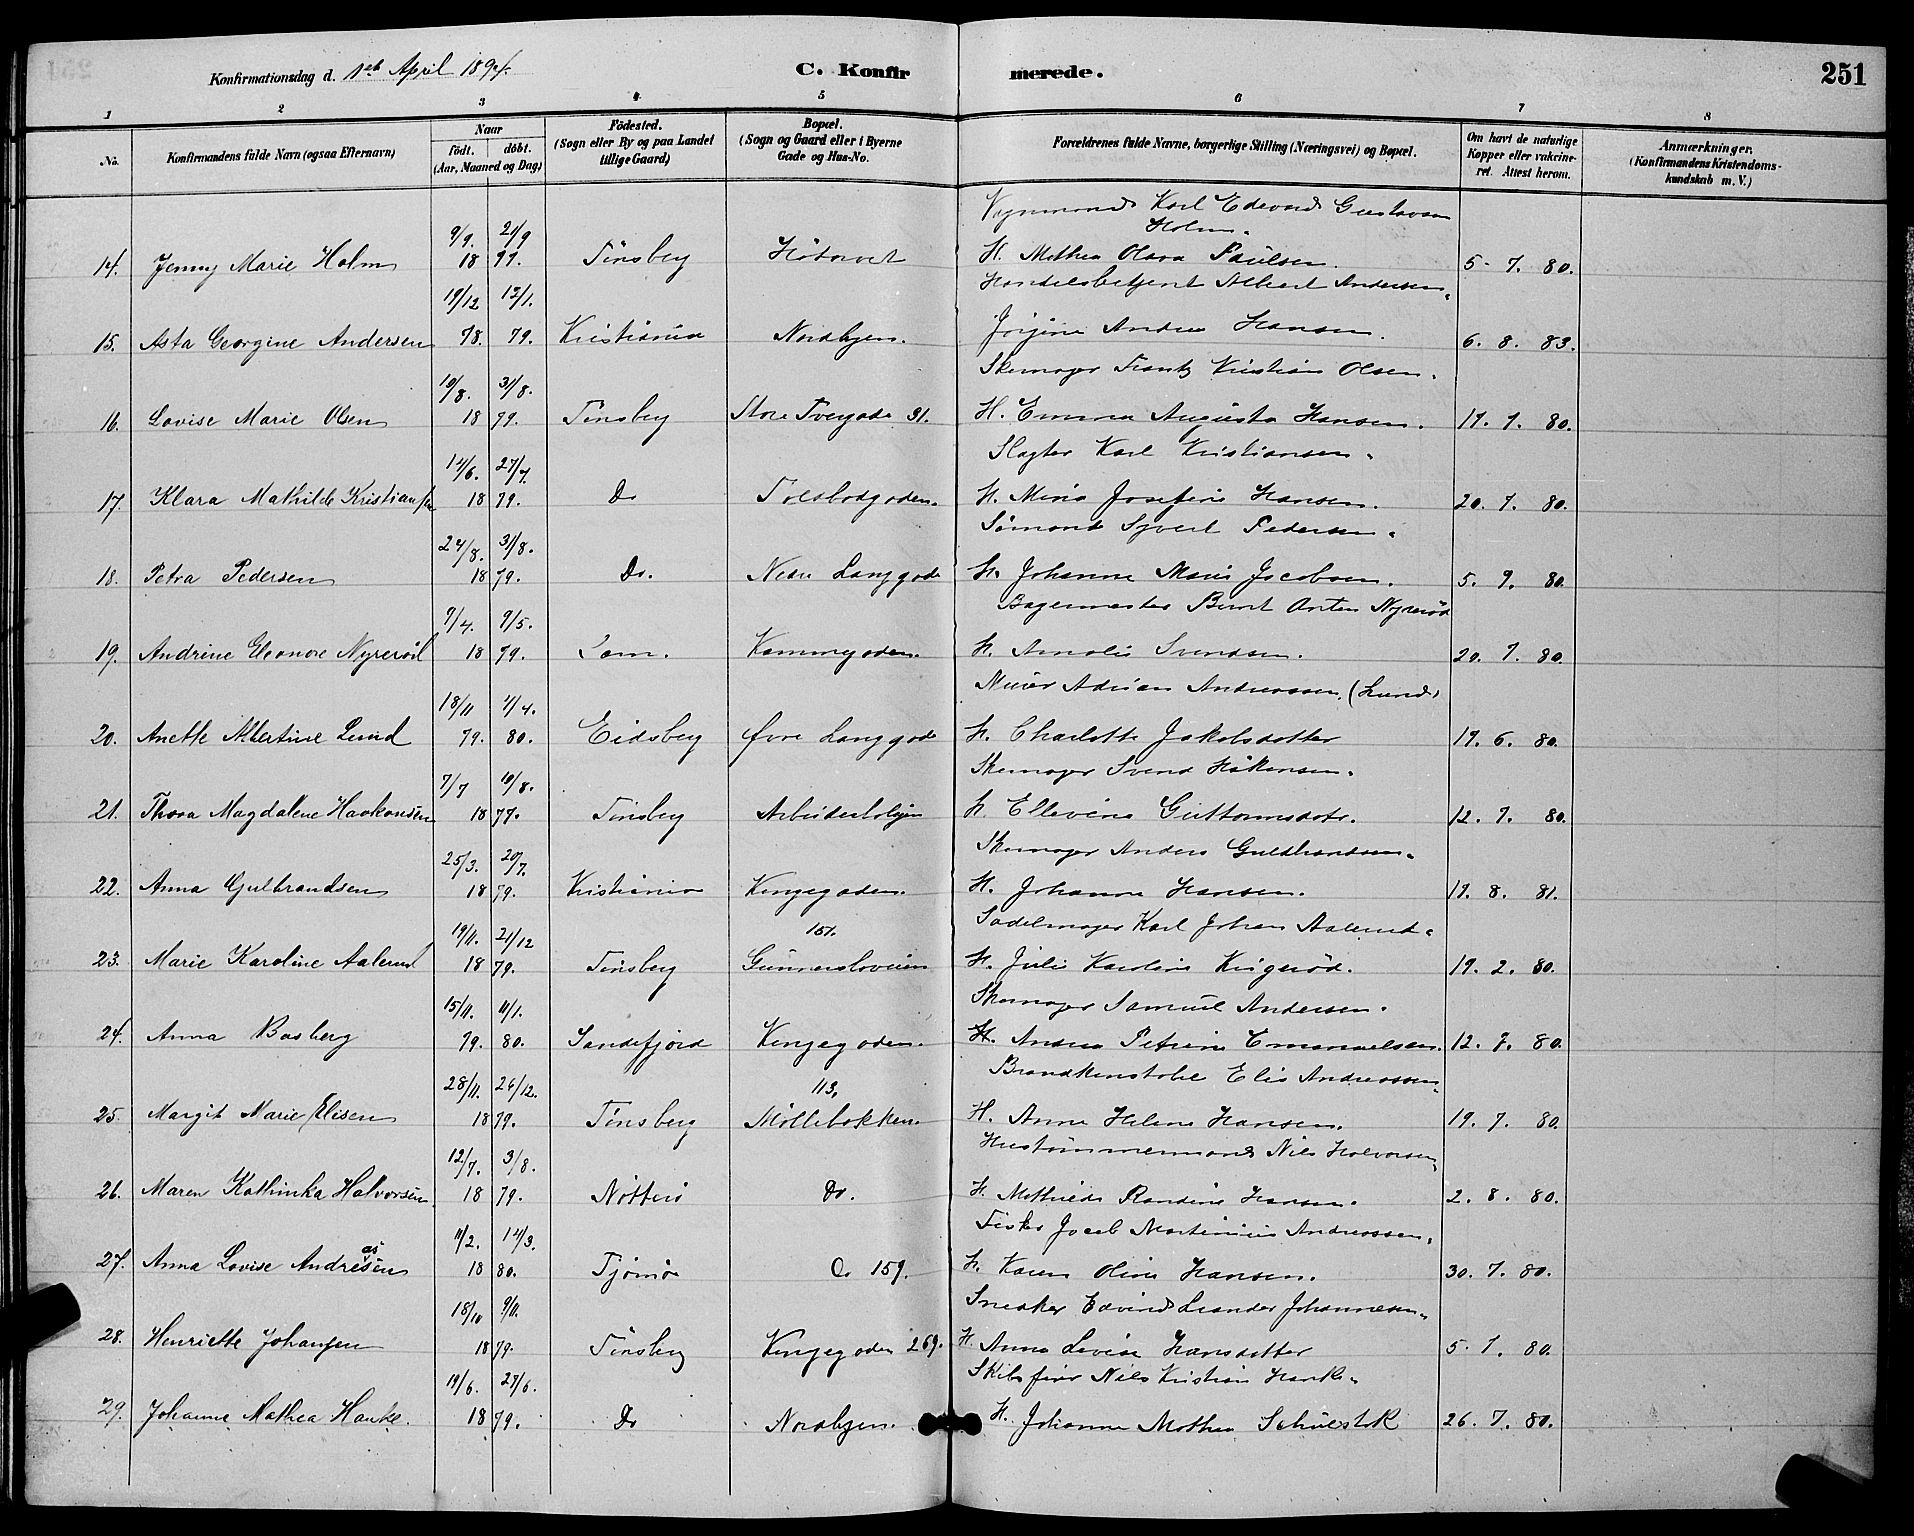 Konfirmationsdag d. 1ste April 1894. C. Konfirmerede. 251
1 2 3 4 5 6 7 8
No. Konfirmandens fulde Navn (ogsaa Efternavn) Naar født. døbt. (Aar, Maaned og Dag) Födested. (Sogn eller By og paa Landet tillige Gaard) Bopæl. (Sogn og Gaard eller i Byerne Gade og Hus-No. Forældrenes fulde Navne, borgerlige Stilling (Næringsvei) og Bopæl. Om havt de naturlige Kopper eller vakcineret. Attest herom. Anmærkninger. (Konfirmandens Kristendomskundskab m. V.)
Vognmand Karl Edevard Gustavsen
9/9. 21/9 Holm.
14. Jenny Marie Holm 18 79. Tönsberg H. Mathea Olava Paulsen. 5. 7. 80.
19/12 12/1. Handelsbetjent Albert Andersen.
15. Asta Georgine Andersen 78. 79. Kristiania Nordbyen. Andrea Hansen. 6. 8. 83.
19/8. 31/8. Skomager Frantz Kristian Olsen.
16. Lovise Marie Olsen 18 79. Tönsberg Store Tvergade 31. H. Emma Augusta Hansen. 19. 7. 80.
14/6. 27/7. Slagter Karl Kristiansen.
17. Klara Mathilde Kristiansen 18 79. Do Toldbodgaden. H. Mina Josefine Hansen. 20. 7. 80.
24/8. 31/8. Sömand Syvert Pedersen.
18. Petra Pedersen 18 79. Do. Nedre Langgade H. Johanne Marie Jacobsen. 5. 9. 80.
7/4. 9/5. Bagermester Bernt Anton Nyrerød
19. Andrine Eleonore Nyreröd 18 79. Sam. Kammegaden. H. Amalie Svendsen. 20. 7. 80.
18/11 4/4. Murer Adrian Andreassen. (Lund)
20. Anette Albertine Lund 79. 80. Eidsberg Øvre Langgade H. Charlotte Jakobsdatter 19. 6. 80.
7/7 10/8. Skomager Svend Håkensen.
21. Thora Magdalene Haakonsen 18 79. Tönsberg Arbeiderboligen H. Ellevine Guttormsdatr. 12. 7. 80.
25/3. 20/7. Skomager Anders Guldbrandsen.
22. Anna Gulbrandsen 18 79. Kristiania Kongegaden. H. Johanne Hansen. 19. 8. 81.
19/11. 21/12 151. Sadelmager Karl Johan Aalerud.
23. Marie Karoline Aalerud 18 79. Tönsberg Gunnersboveien H. Julie Karoline Kigeröd. 19. 2. 80.
15/11. 11/1. Skomager Samuel Andersen.
24. Anna Basberg 79. 80. Sandefjord Kongegaden. H. Andrea Petrine Emanuelsen. 12. 7. 80.
28/11. 26/12. 113, Brandkonstabel Elis Andreassen.
25. Margit Marie Elisen 18 79. Tönsberg Möllebakken. H. Anne Helene Hansen. 19. 7. 80.
12/7. 3/8. Hustömmermand Nils Halvorsen.
26. Maren Kathinka Halvorsen. 18 79. Nötterö Do. H. Mathilde Randine Hansen. 2. 8. 80.
11/2. 14/3. Fisker Jacob Martinius Andreassen.
27. Anna Lovise Andreasen 18 80. Tjömö Do 159. H. Karen Oline Hansen. 30. 7. 80.
18/10 9/11. Snedker Edvind Leander Johannesen.
28. Henriette Johansen 18 79. Tönsberg Kongegaden 269. H. Anna Lovise Hansdatter 5. 7. 80.
19/6. 29/6. Skibsförer Nils Kristian Hanke.
29. Johanne Mathea Hanke. 18 79. Do Nordbyen. H. Johanne Mathea 26. 7. 80.